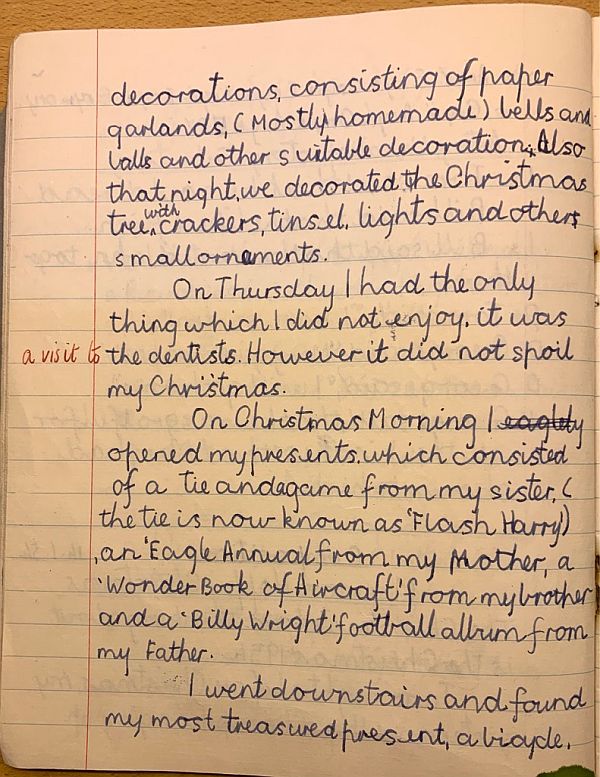 decorations, consisting of paper
garlands, (Mostly homemade) bells and
balls and other suitable decoration. Also
that night, we decorated the Christmas
tree, with crackers, tinsel, lights and others
small ornaments.
On Thursday I had the only
thing which I did not enjoy. it was
a visit to the dentists. However it did not spoil
my Christmas.
On Christmas Morning I eaglely
opened my presents. which consisted
of a tie and a game from my sister, (
the tie is now known as 'Flash Harry)
, an 'Eagle Annual from my Mother, a
'Wonder Book of Aircraft' from my brother
and a 'Billy Wright' football album from
my Father.
I went downstairs and found
my most treasured present, a bicycle.